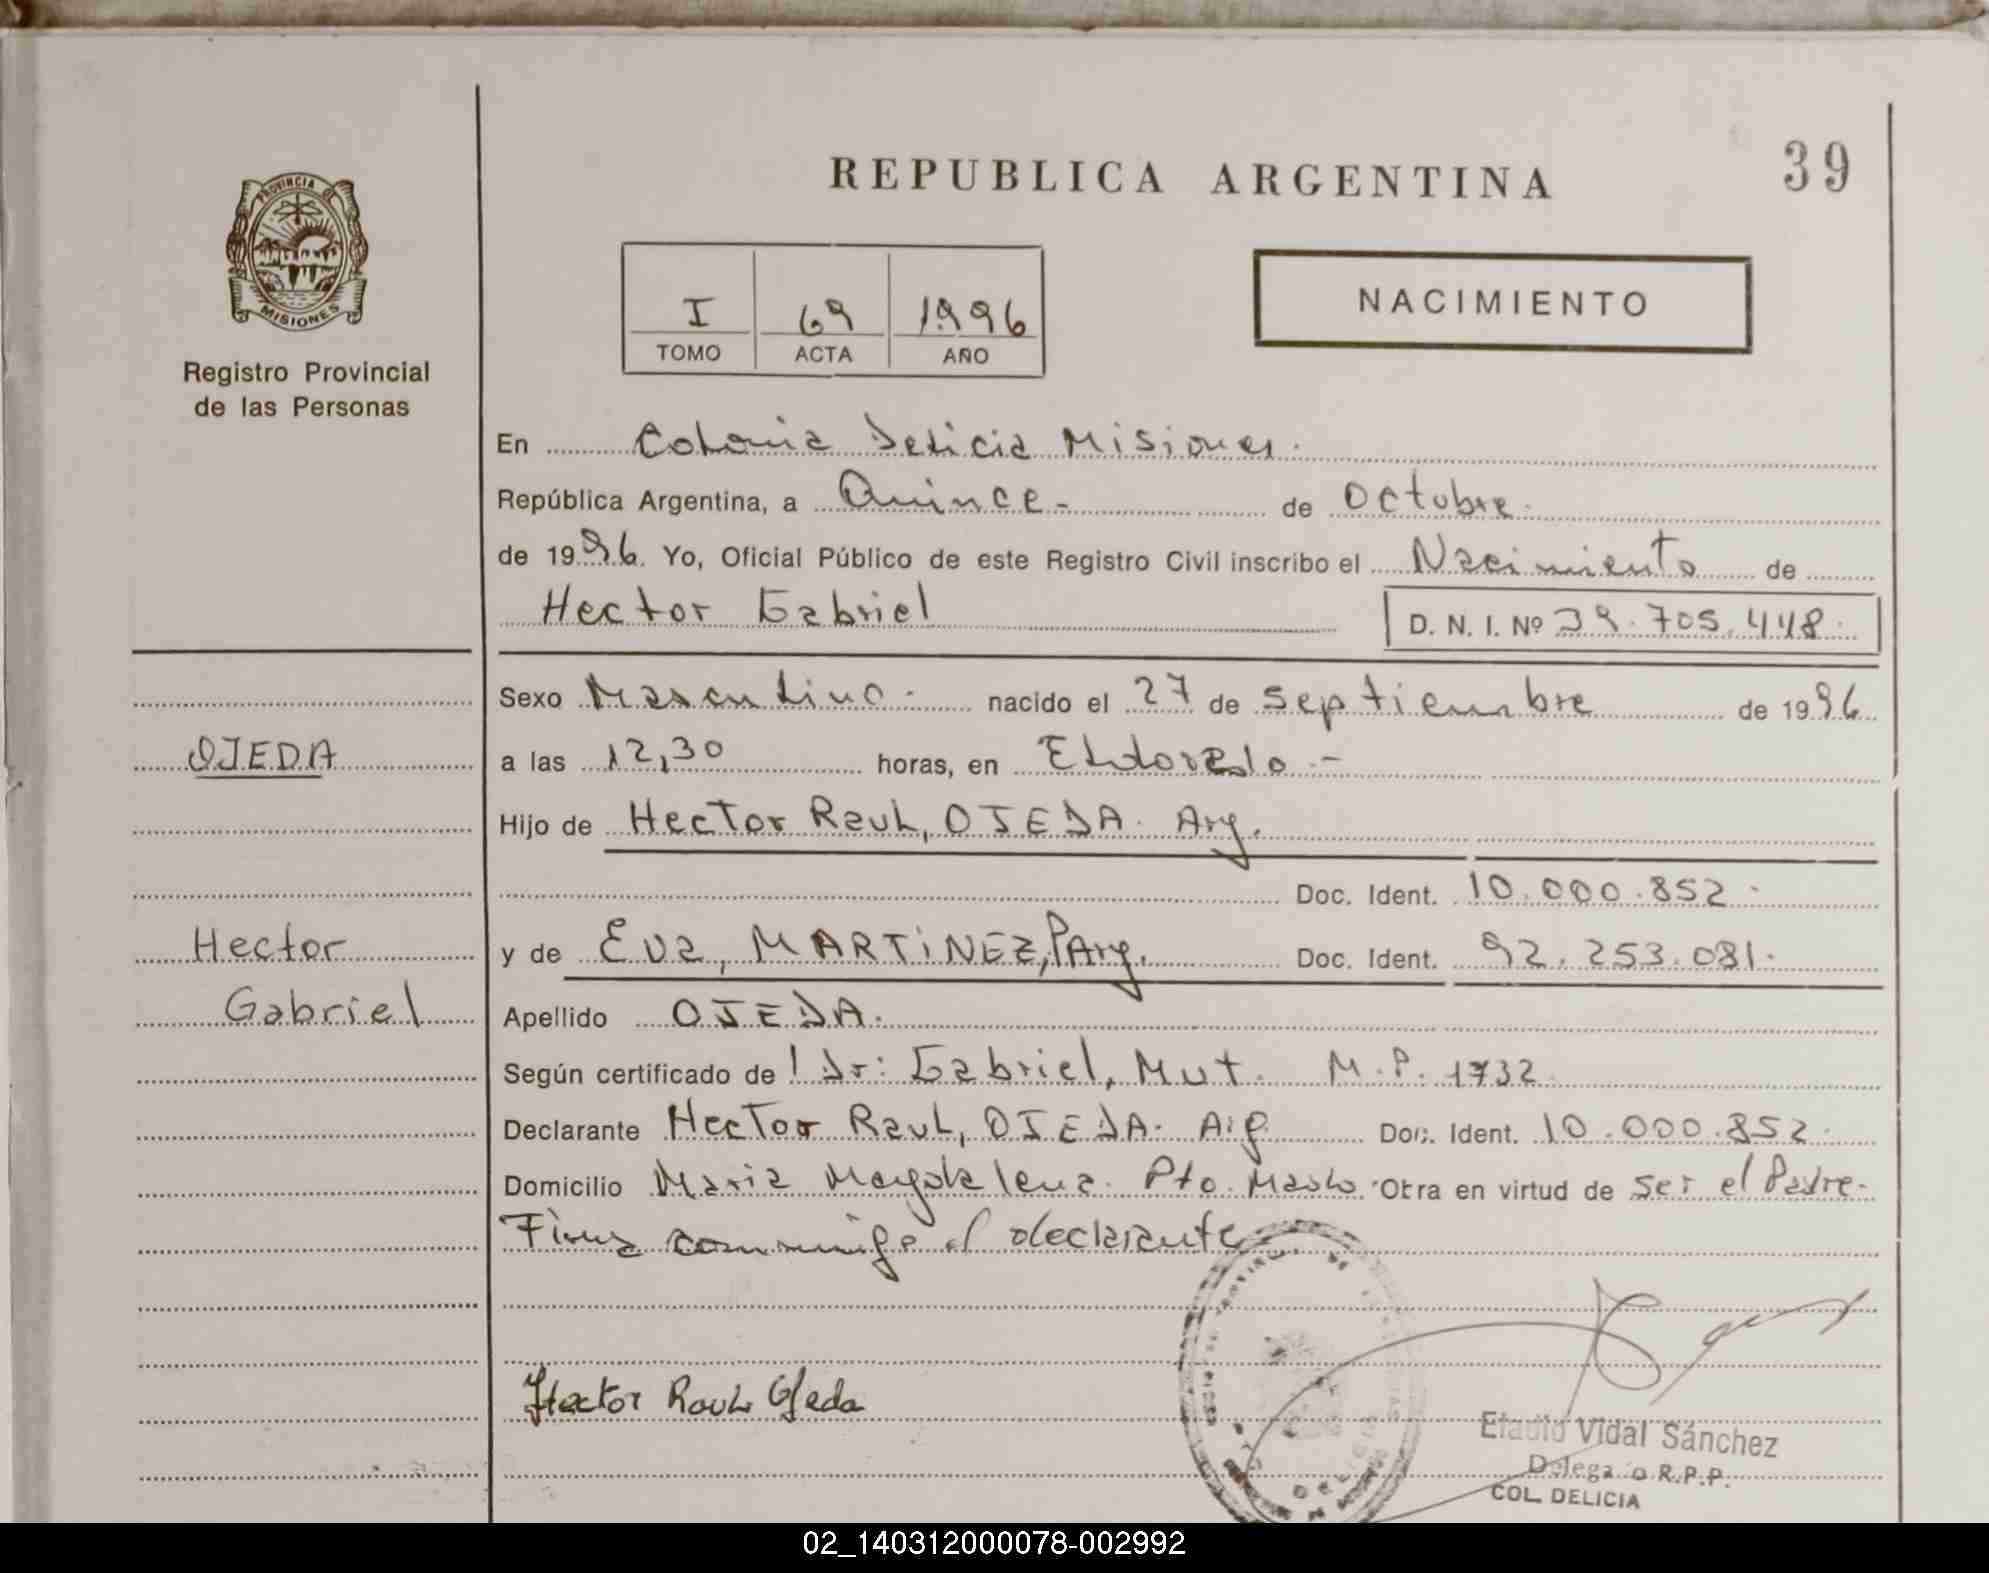 REPUBLICA ARGENTINA
39
PROVINCIA DE
MISIONES
Registro Provincial
de las Personas
I 69 1996
TOMO ACTA AÑO
NACIMIENTO
En Colonia Delicia Misiones.
República Argentina, a Quince - de Octubre.
de 1996. Yo, Oficial Público de este Registro Civil inscribo el Nacimiento de
Hector Gabriel D. N. I. Nº 39.705.448.
Sexo Masculino. nacido el 27 de septiembre de 1996
OJEDA
a las 12,30 horas, en Eldorado -
Hijo de Hector Raul, OJEDA. Arg.
Doc. Ident. 10.000.852.
Hector
Gabriel
y de Eva, MARTiNEZ, PArg. Doc. Ident. 92.253.081.
Apellido OJEDA.
Según certificado de Dr: Gabriel, Mut. M.P. 1732
Declarante Hector Raul, OJEDA. Arg Doc. Ident. 10.000.852.
Domicilio Maria Magdalena. Pto. Mado. Otra en virtud de ser el Padre.
Firma conmigo el declarante
Hector Raul Ojeda
Eladio Vidal Sánchez
Delegado R.P.P.
COL. DELICIA
02_140312000078-002992